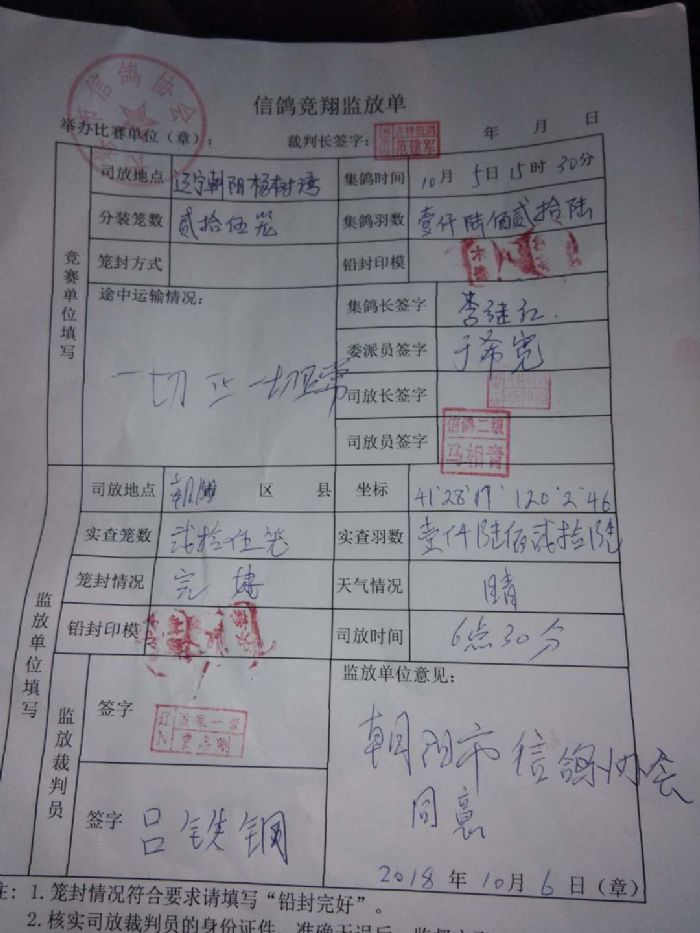 信鸽竞翔监放单
举办比赛单位（章）： 裁判长签字： 范建军 年 月 日
信鸽协会
竞赛单位填写
司放地点 辽宁朝阳杨树湾 集鸽时间 10月5日15时30分
分装笼数 贰拾伍笼 集鸽羽数 壹仟陆佰贰拾陆
笼封方式 铅封印模
途中运输情况： 集鸽长签字 李继红
委派员签字 于希宽
一切正 一切正常
司放长签字
司放员签字 信鸽二级 冯相青
监放单位填写
司放地点 朝阳 区 县 坐标 41°28′17″ 120°2′46
实查笼数 贰拾伍笼 实查羽数 壹仟陆佰贰拾陆
笼封情况 完 天气情况 晴
铅封印模 司放时间 6点30分
监放裁判员
签字 监放单位意见：
辽 国家一级
朝阳市信鸽协会
同意
签字 吕铁钢
2018年10月6日（章）
注：1.笼封情况符合要求请填写“铅封完好”。
2.核实司放裁判员的身份证件，准确无误后，